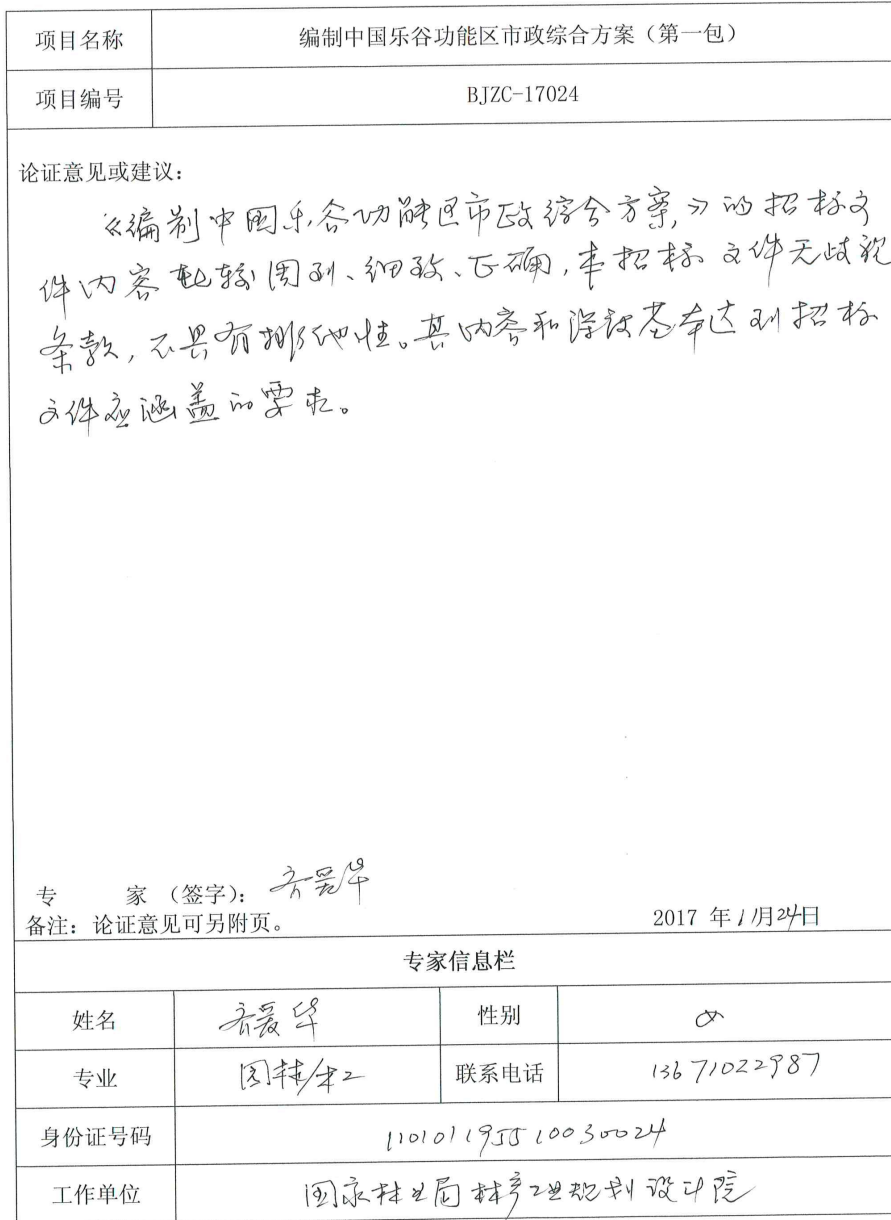 项目名称 编制中国乐谷功能区市政综合方案（第一包）
项目编号 BJZC-17024
论证意见或建议：
《编制中国乐谷功能区市政综合方案》的招标文
件内容比较周到、细致、正确，本招标文件无歧视
条款，不具有排他性。其内容和深度基本达到招标
文件应涵盖的要求。
专 家 （签字）：齐爱华
备注：论证意见可另附页。 2017 年1月24日
专家信息栏
姓名 齐爱华 性别 女
专业 园林 联系电话 13671022987
身份证号码 110101195510030024
工作单位 国家林业局林产工业规划设计院